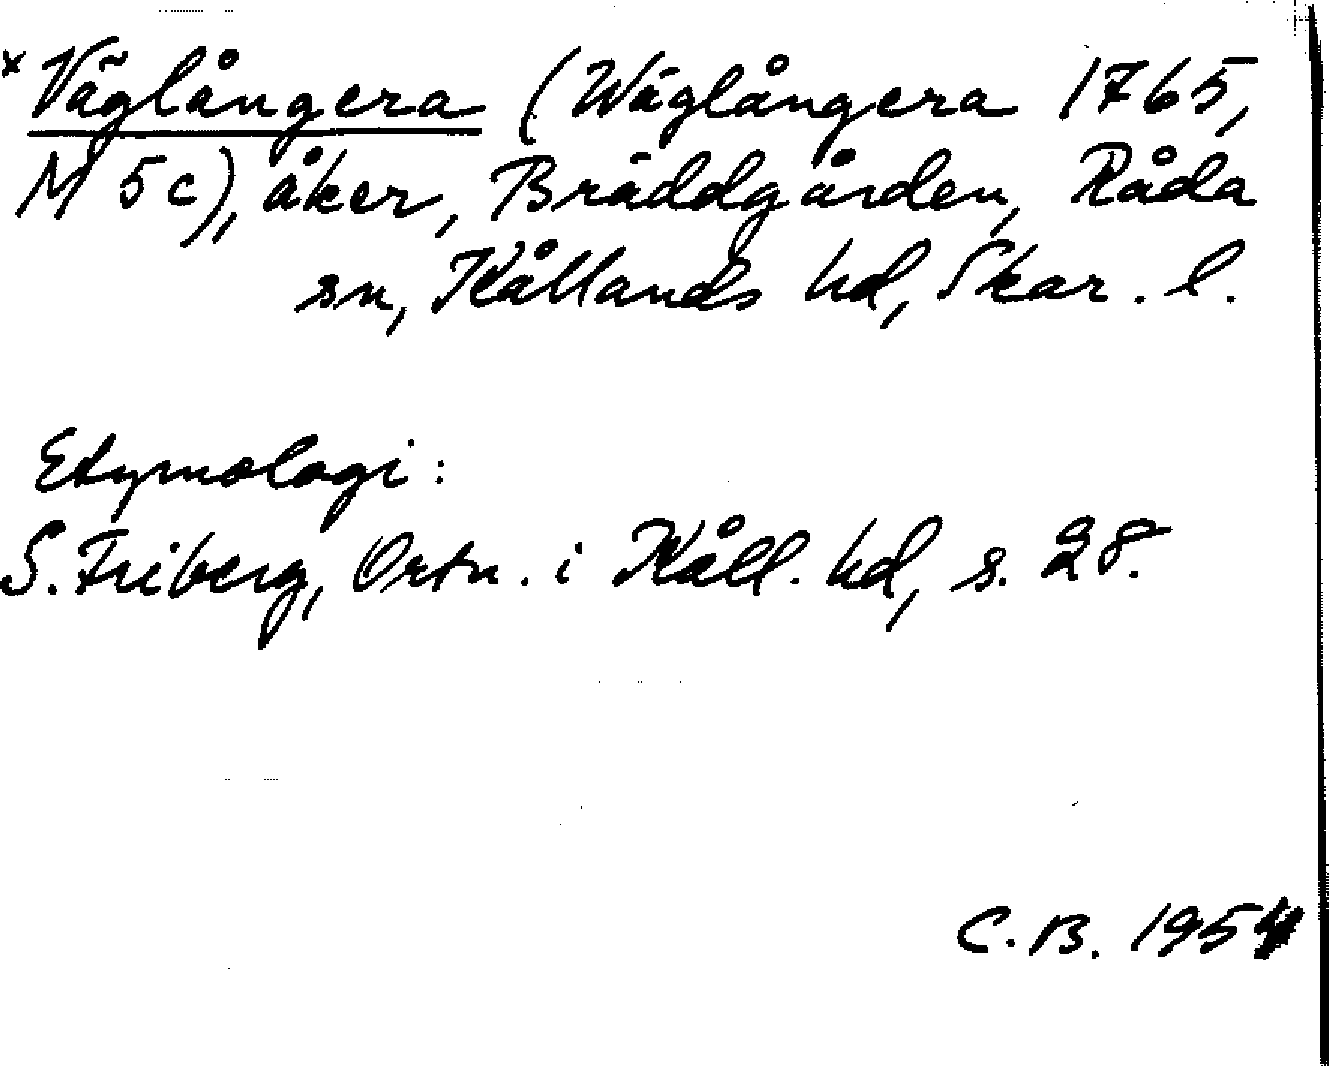 × Väglångera (Wäglångera 1765,
M 5c), åker, Bräddgården, Råda
sn, Kållands hd, Skar. l.
Etymologi:
S. Friberg, Ortn. i Kåll. hd, s. 28.
C.B. 1954